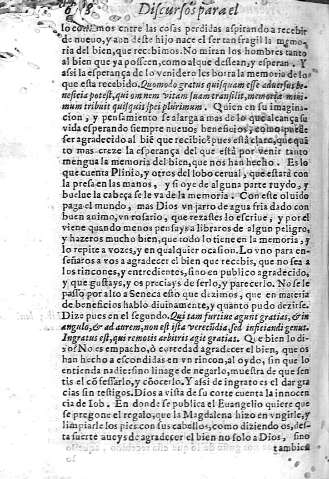 618 Discursos para el
lo contamos entre las cosas perdidas aspirando a recebir
de nueuo, y aun deste hijo nace el ser tan fragil la memo-
ria del bien, que recebimos. No miran los hombres tanto
al bien que ya posseen, como al que dessean, y esperan. Y
assi la esperança de lo venidero les borra la memoria de lo
que esta recebido. Quomodo gratus quisquam esse aduersus be-
neficia potest, qui omnem vitam suam transilit, memoriæ mini-
mum tribuit quisquis spei plurimum. Quien en su imagina-
cion, y pensamiento se alarga a mas de lo que alcança su
vida esperando siempre nueuos beneficios, como puede
ser agradecido al biē que recibe? pues està claro, que quã
to mas creze la esperança del que està por venir tanto
mengua la memoria del bien, que nos han hecho. Es lo
que cuenta Plinio, y otros del lobo cerual, que estarà con
la presa en las manos, y si oye de alguna parte ruydo, y
buelue la cabeça se le va de la memoria. Con este oluido
paga el mundo, mas Dios vn jarro de agua fria dado con
buen animo, vn rosario, que rezastes lo escriue, y por el
viene quando menos pensays a libraros de algun peligro,
y hazeros mucho bien, que todo lo tiene en la memoria, y
lo repite a vozes, y en qualquier ocasion. Lo vno para en-
señaros a vos a agradecer el bien que recebis, que no sea a
los rincones, y entredientes, sino en publico agradecido,
y que gustays, y os preciays de serlo, y parecerlo. No se le
passò por alto a Seneca esto que dezimos, que en materia
de beneficios hablò diuinamente, y quanto pudo dezirse.
Dize pues en el segundo. Qui tam furtiue agunt gratias, & in
angulo, & ad aurem, non est ista verecūdia, sed inficiandi genus.
Ingratus est, qui remotis arbitris agit gratias. Que bien lo di-
xo! No es empacho, ò cortedad agradecer el bien, que os
han hecho a escondidas en vn rincon, al oydo, sin que lo
entienda nadie: sino linage de negarlo, muestra de que sen
tis el cōfessarlo, y cōocerlo. Y assi de ingrato es el dar gra
cias sin testigos. Dios a vista de su corte cuenta la innocen
cia de Iob. En donde se publica el Euangelio quiere que
se pregone el regalo, que la Magdalena hizo en vngirle, y
limpiarle los pies con sus cabellos, como diziendo os, des-
ta suerte aueys de agradecer el bien no solo a Dios, sino
tambien